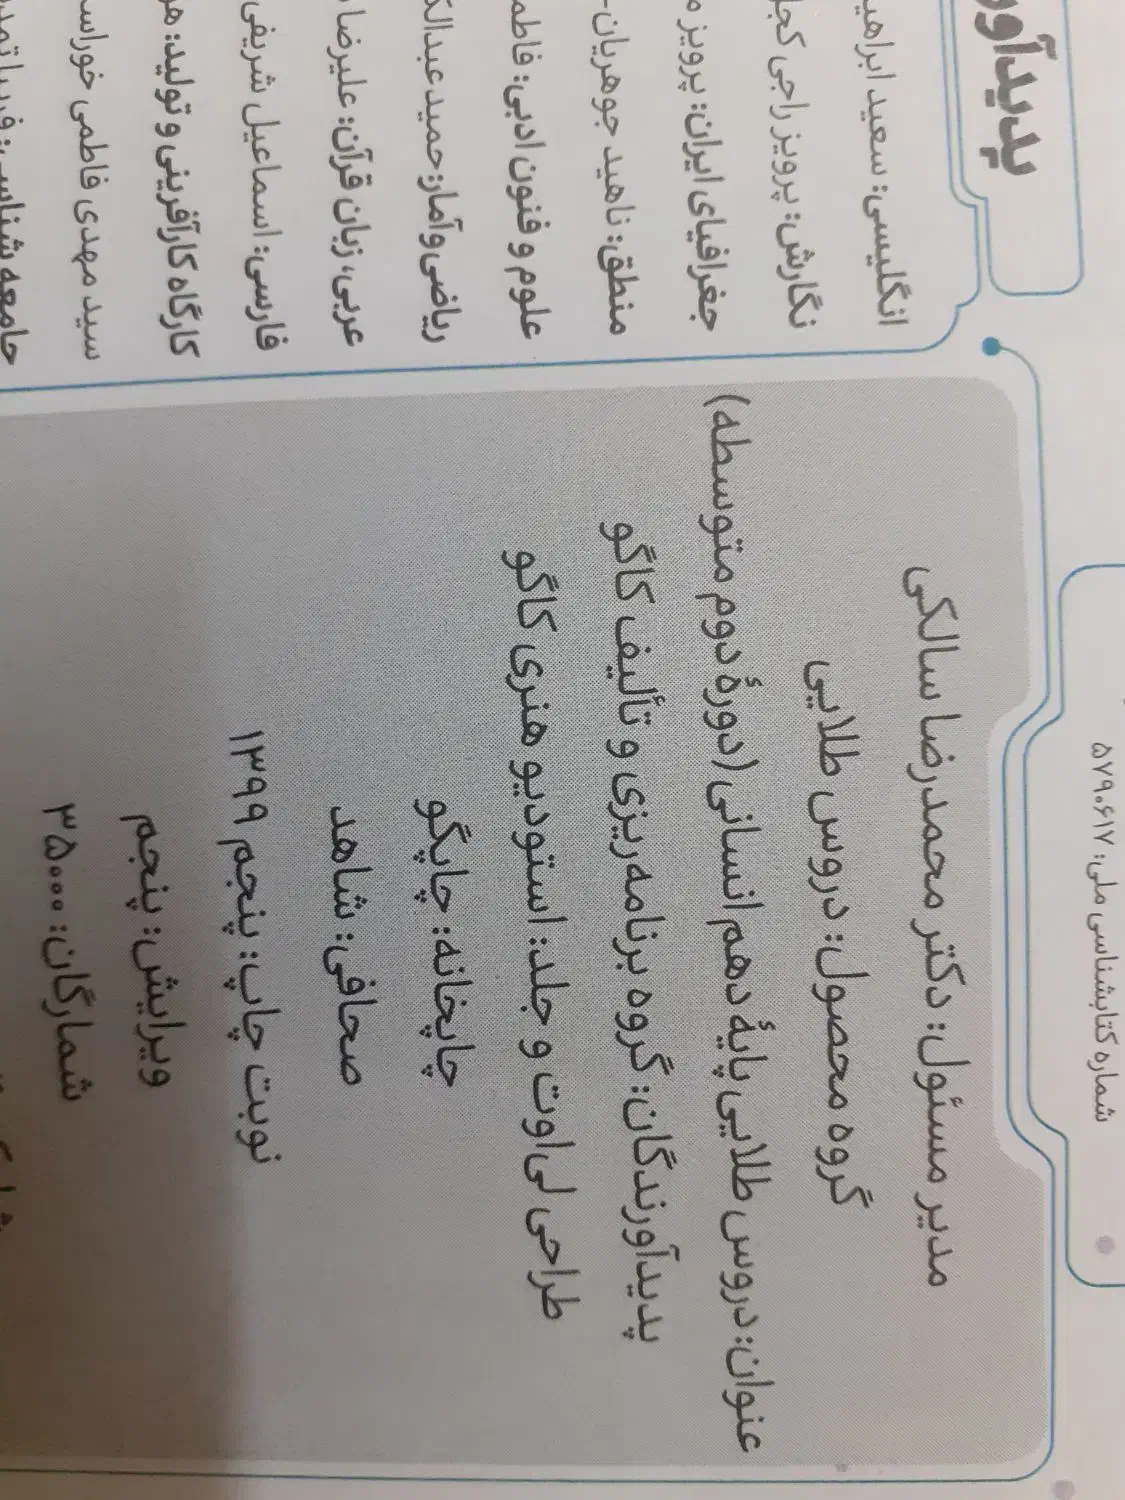 شماره کتابشناسی ملی: ۵۷۹۰۶۱۷
مدیر مسئول: دکتر محمدرضا سالکی
گروه محصول: دروس طلایی
عنوان: دروس طلایی پایهٔ دهم انسانی (دورهٔ دوم متوسطه)
پدیدآورندگان: گروه برنامه‌ریزی و تألیف کاگو
طراحی لی‌اوت و جلد: استودیو هنری کاگو
چاپخانه: چاپگو
صحافی: شاهد
نوبت چاپ: پنجم ۱۳۹۹
ویرایش: پنجم
شمارگان: ۳۵۰۰۰
انگلیسی: سعید
نگارش: پرویز راجی
جغرافیای ایران: پرویز
منطق: ناهید جوهریان
علوم و فنون ادبی:
ریاضی و آمار: حمید
عربی، زبان قرآن: علیرضا
فارسی: اسماعیل شریفی
کارگاه کارآفرینی و تولید:
سید مهدی فاطمی
جامعه شناسی: